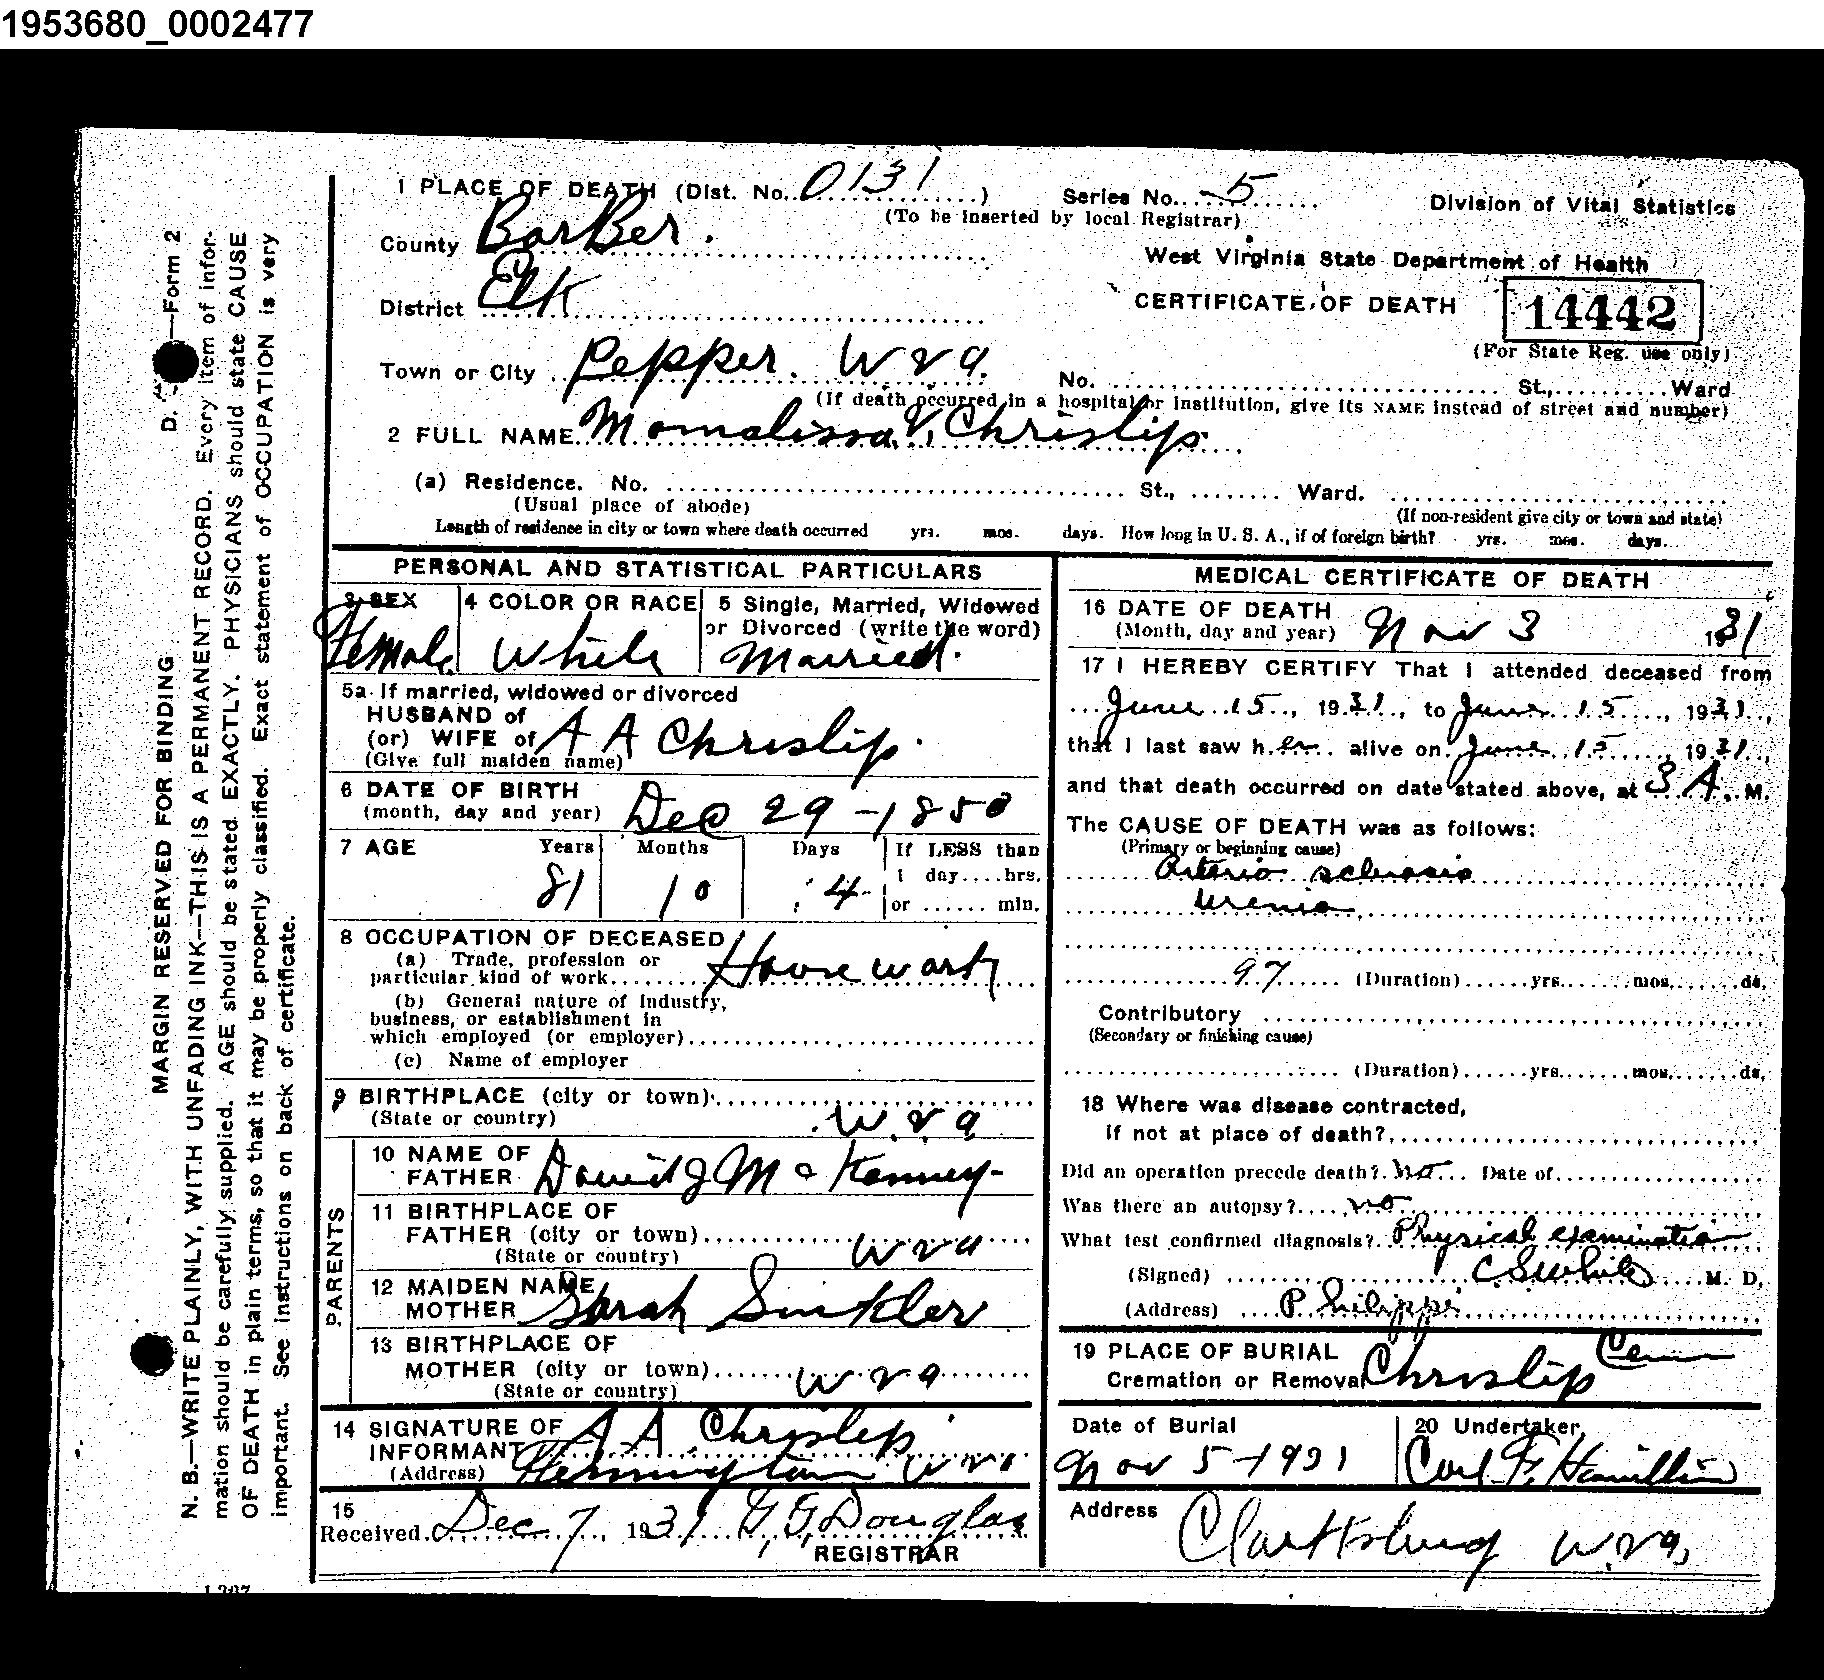 1953680_0002477
1 PLACE OF DEATH (Dist. No. 0131) Series No. 5 Division of Vital Statistics
(To be inserted by local Registrar)
County Barber. West Virginia State Department of Health
District Elk CERTIFICATE OF DEATH 14442
(For State Reg. use only)
Town or City Pepper. W Va. No. St., Ward
(If death occurred in a hospital or institution, give its NAME instead of street and number)
2 FULL NAME Momalissa V. Chrislip
(a) Residence. No. St., Ward.
(Usual place of abode) (If non-resident give city or town and state)
Length of residence in city or town where death occurred yrs. mos. days. How long in U. S. A., if of foreign birth? yrs. mos. days.
PERSONAL AND STATISTICAL PARTICULARS
3 SEX 4 COLOR OR RACE 5 Single, Married, Widowed
or Divorced (write the word)
Female White Married.
5a If married, widowed or divorced
HUSBAND of
(or) WIFE of A A Chrislip.
(Give full maiden name)
6 DATE OF BIRTH
(month, day and year) Dec 29 - 1850
7 AGE Years Months Days If LESS than
1 day....hrs.
81 10 4 or ...... min.
8 OCCUPATION OF DECEASED
(a) Trade, profession or
particular kind of work House work
(b) General nature of Industry,
business, or establishment in
which employed (or employer)
(c) Name of employer
9 BIRTHPLACE (city or town)
(State or country) W. Va
PARENTS
10 NAME OF
FATHER David J McKenney
11 BIRTHPLACE OF
FATHER (city or town)
(State or country) W Va
12 MAIDEN NAME
MOTHER Sarah Sinkler
13 BIRTHPLACE OF
MOTHER (city or town)
(State or country) W Va
14 SIGNATURE OF
INFORMANT A. A. Chrislip
(Address) W Va
15
Received Dec 7, 1931 G. G. Douglas
REGISTRAR
MEDICAL CERTIFICATE OF DEATH
16 DATE OF DEATH
(Month, day and year) Nov 3 1931
17 I HEREBY CERTIFY That I attended deceased from
June 15, 1931, to June 15, 1931,
that I last saw her alive on June 15, 1931,
and that death occurred on date stated above, at 3 A. M.
The CAUSE OF DEATH was as follows:
(Primary or beginning cause)
Arterio sclerosis
Uremia
97 (Duration) yrs. mos. ds.
Contributory
(Secondary or finishing cause)
(Duration) yrs. mos. ds.
18 Where was disease contracted,
if not at place of death?
Did an operation precede death? No Date of
Was there an autopsy? no
What test confirmed diagnosis? Physical examination
(Signed) C S White M. D.
(Address) Philippi
19 PLACE OF BURIAL
Cremation or Removal Chrislip Cem
Date of Burial 20 Undertaker
Nov 5-1931 Carl F. Hamilton
Address
Clarksburg W. Va,
D. —Form 2
MARGIN RESERVED FOR BINDING
N. B.—WRITE PLAINLY, WITH UNFADING INK—THIS IS A PERMANENT RECORD. Every item of infor-
mation should be carefully supplied. AGE should be stated EXACTLY. PHYSICIANS should state CAUSE
OF DEATH in plain terms, so that it may be properly classified. Exact statement of OCCUPATION is very
important. See instructions on back of certificate.